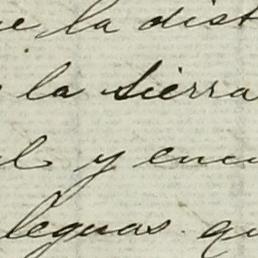 la dist
la Sierra
y encu
leguas qu